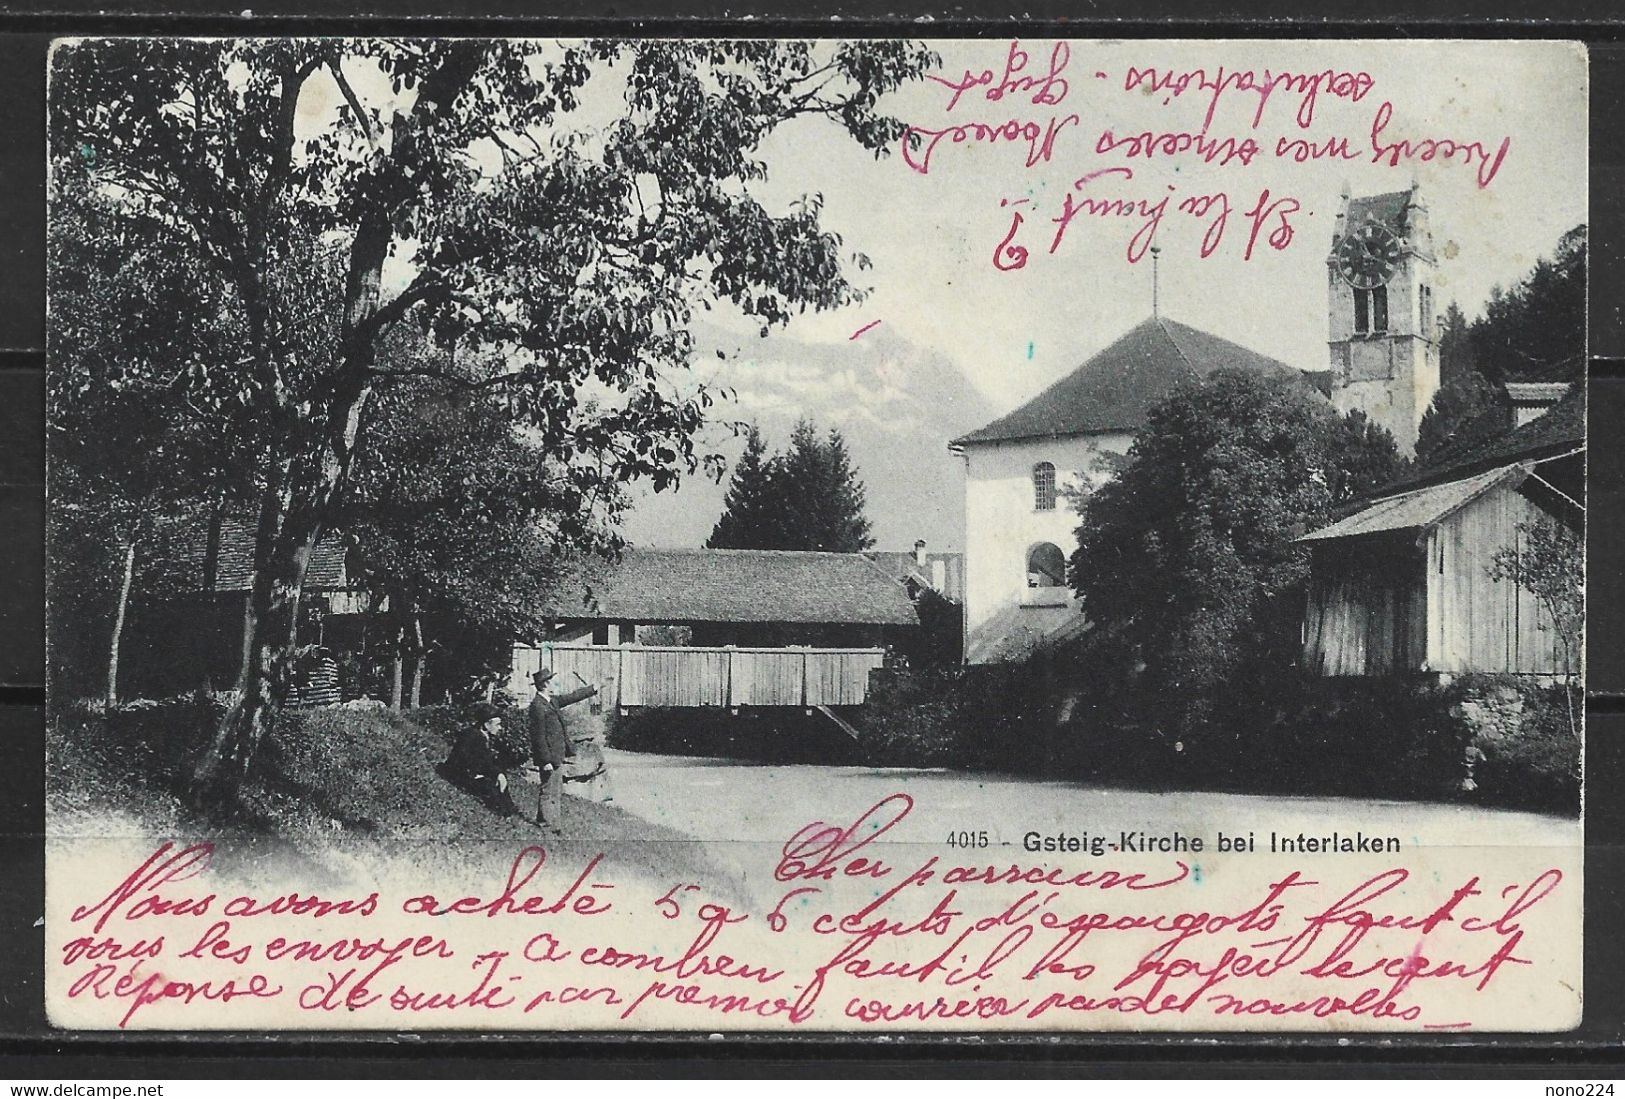 4015 - Gsteig-Kirche bei Interlaken
Cher parrain
Nous avons acheté 5 a 6 cents d'escargots faut il
vous les envoyer - a combien faut il les payer le cent
Réponse de suite par premier courrier pas de nouvelles
Et la
Recevez mes sinceres
salutations -
nono224